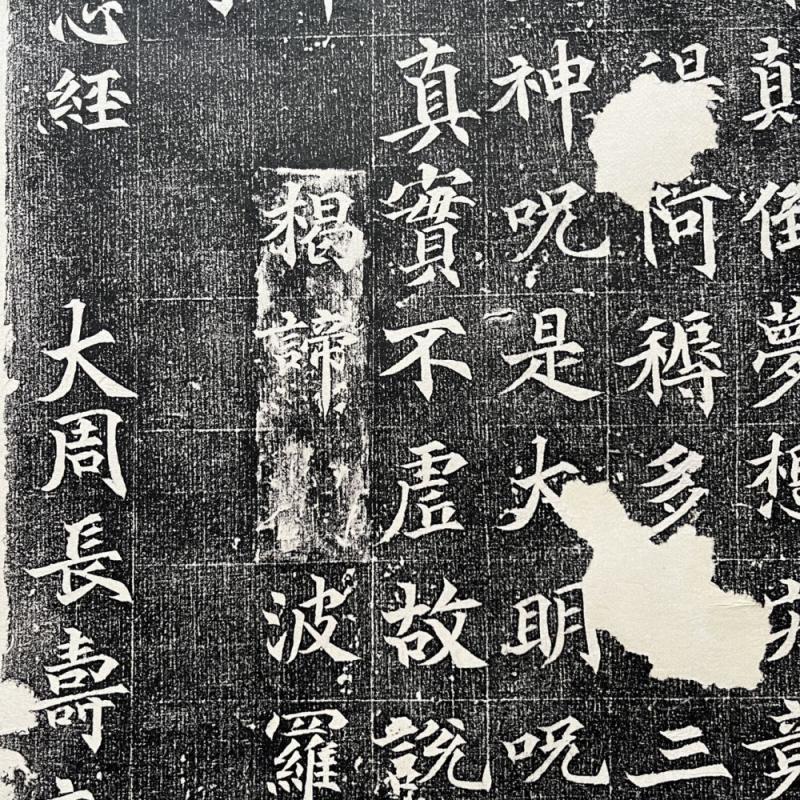 顛倒夢想究竟
得阿耨多三
神呪是大明呪
真實不虛故說
揭諦波羅
心經 大周長壽